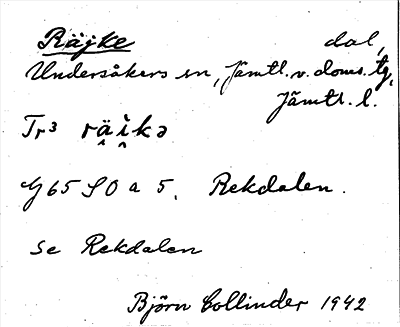 Räjke dal,
Undersåkers sn, Jämtl. v. doms. tg,
Jämtl. l.
Tr³ räikə
G 65 SO a 5. Rekdalen.
se Rekdalen
Björn Collinder 1942